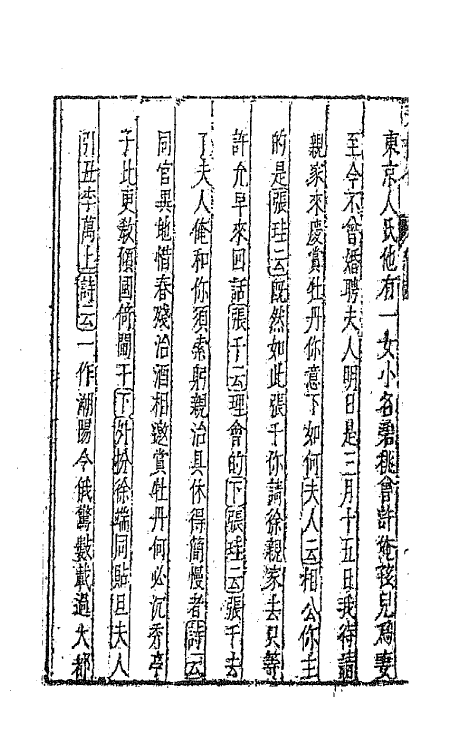 東京人氏他有一女小名碧桃曾許俺孩兒爲妻
至今不曾婚聘夫人明日是三月十五日我待請
親家來慶賞牡丹你意下如何夫人云相公你主
的是張珪云旣然如此張千你請徐親家去只等
許允早來囬話張千云理會的下張珪云張千去
了夫人俺和你須索躬親治具休得簡慢者詩云
同官異地惜春殘治酒相邀賞牡丹何必沉香亭
子北更教傾國倚闌干下外扮徐端同貼旦夫人
引丑李萬上詩云一作潮陽令俄驚數載過大都